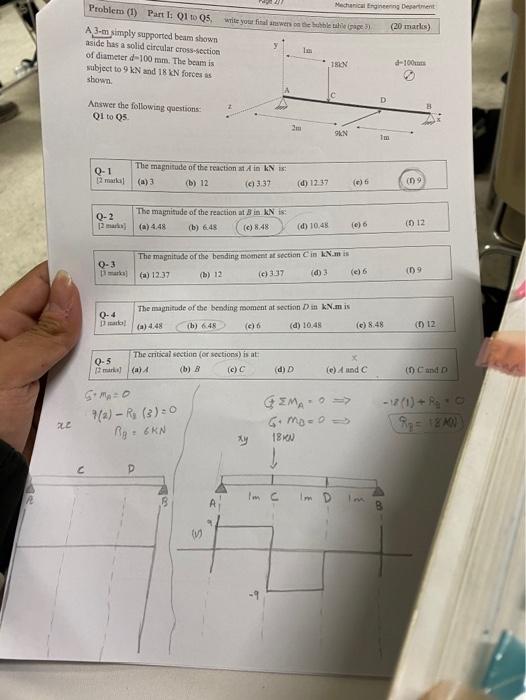 Mechanical Engineering Department
Problem (1) Part I: Q1 to Q5, write your final answers on the bubble table (page 3). (20 marks)
A 3-m simply supported beam shown
aside has a solid circular cross-section
of diameter d=100 mm. The beam is
subject to 9 kN and 18 kN forces as
shown.
Answer the following questions:
Q1 to Q5.
y
1m
18kN
d=100mm
A
C
D
B
x
z
2m
9kN
1m
Q-1
[2 marks]
The magnitude of the reaction at A in kN is:
(a) 3 (b) 12 (c) 3.37 (d) 12.37 (e) 6 (f) 9
Q-2
[2 marks]
The magnitude of the reaction at B in kN is:
(a) 4.48 (b) 6.48 (c) 8.48 (d) 10.48 (e) 6 (f) 12
Q-3
[3 marks]
The magnitude of the bending moment at section C in kN.m is
(a) 12.37 (b) 12 (c) 3.37 (d) 3 (e) 6 (f) 9
Q-4
[3 marks]
The magnitude of the bending moment at section D in kN.m is
(a) 4.48 (b) 6.48 (c) 6 (d) 10.48 (e) 8.48 (f) 12
Q-5
[2 marks]
The critical section (or sections) is at:
(a) A (b) B (c) C (d) D (e) A and C (f) C and D
MA = 0
9(2) - RB (3) = 0
RB = 6KN
xz
ΣMA = 0 ⇒ -18(1) + RB = 0
MB = 0 ⇒ RB = 18KN
xy
18KN
C D
A B
A 1m C 1m D 1m B
(V)
9
-9